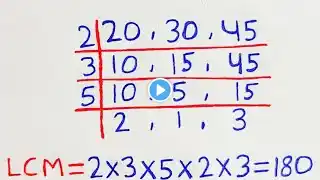 2 20, 30, 45
3 10, 15, 45
5 10, 5, 15
2, 1, 3
LCM=2×3×5×2×3=180